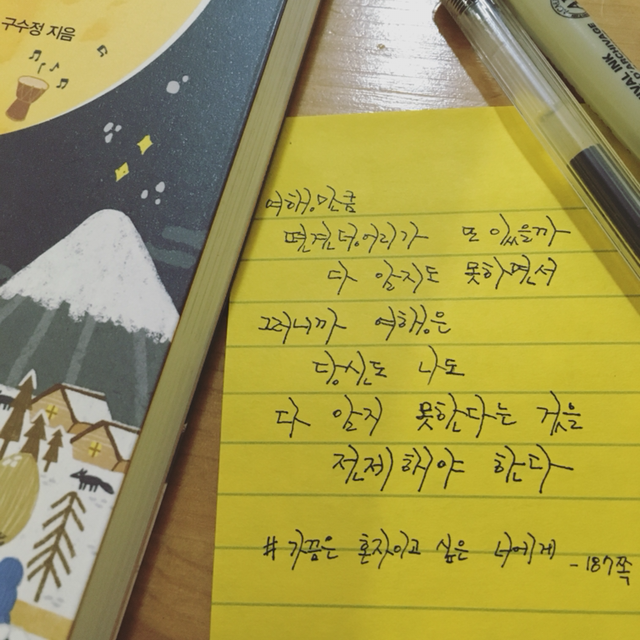 구수정 지음
여행만큼
편견덩어리가 또 있을까
다 알지도 못하면서
그러니까 여행은
당신도 나도
다 알지 못한다는 것을
전제해야 한다
#가끔은 혼자이고 싶은 너에게 -187쪽